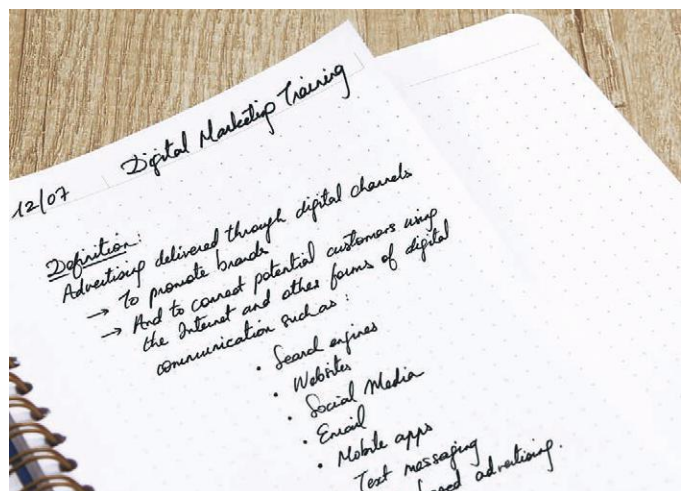 12/07
Digital Marketing Training
Definition:
Advertising delivered through digital channels
→ To promote brands
→ And to connect potential customers using
the Internet and other forms of digital
communication such as:
• Search engines
• Websites
• Social Media
• Email
• Mobile apps
Text messaging
advertising.